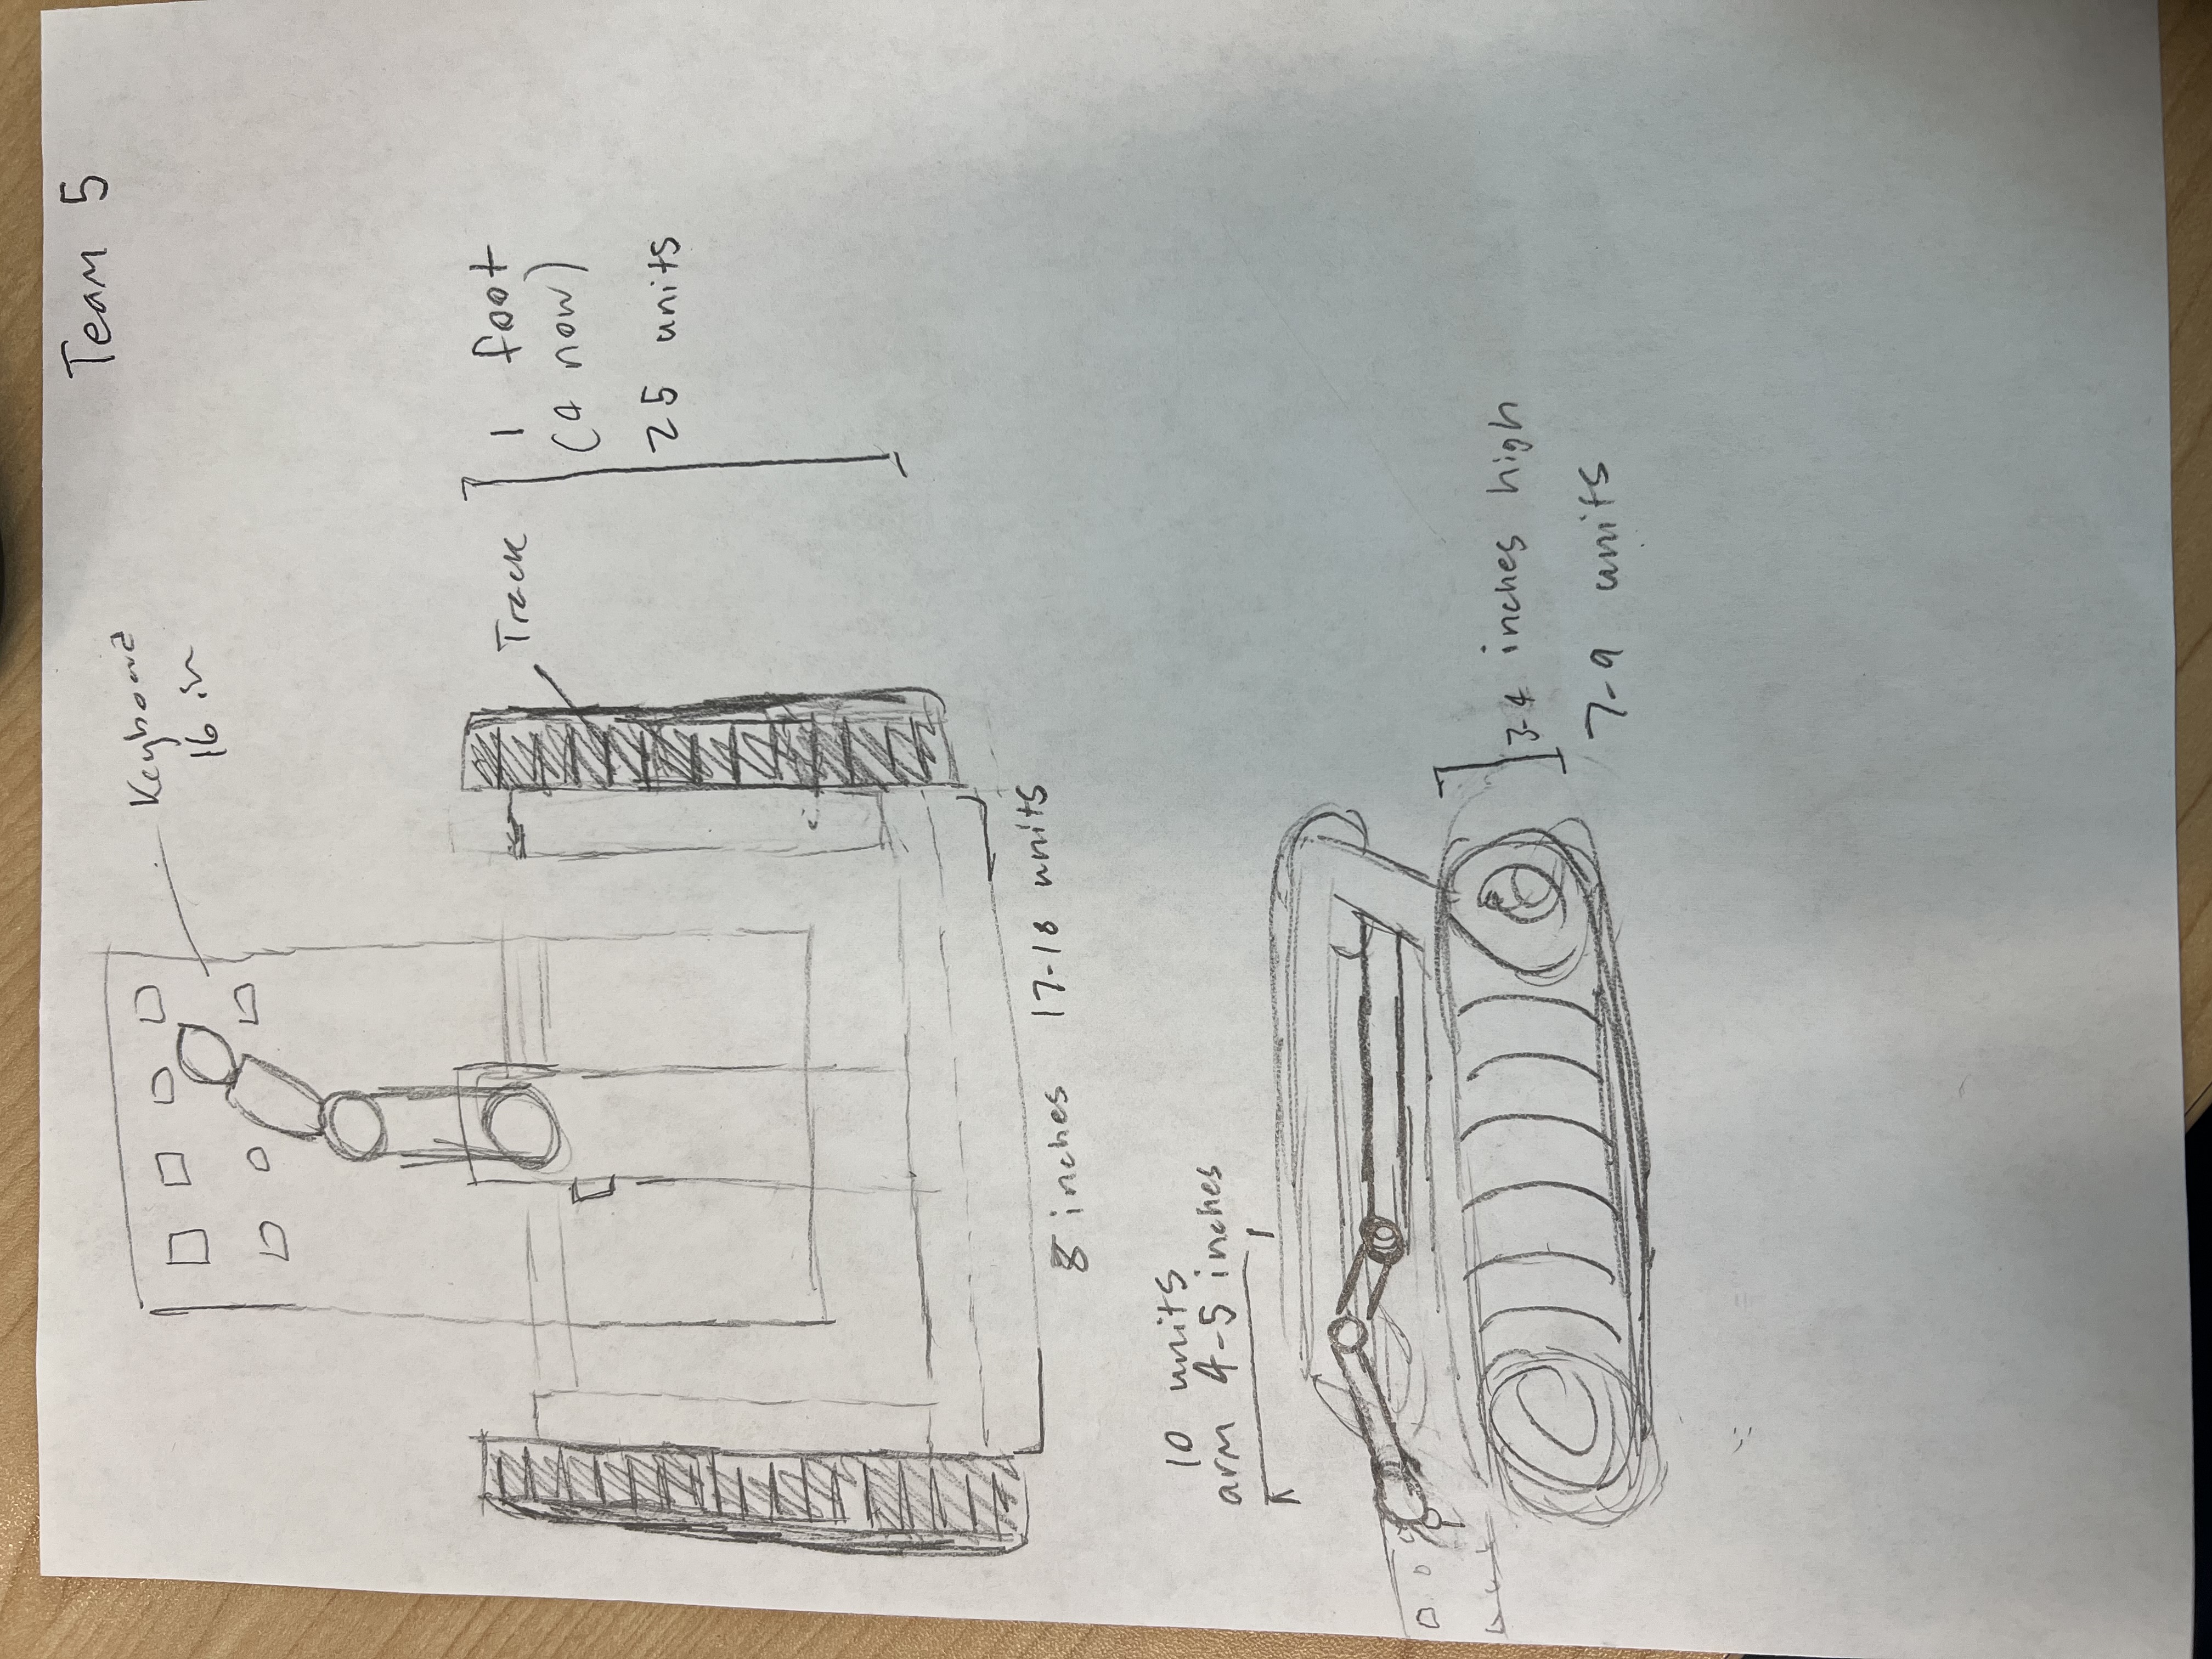 Team 5
Keyboard
16 in
Track
1 foot
(4 now)
25 units
8 inches 17-18 units
10 units
arm 4-5 inches
3-4 inches high
7-9 units